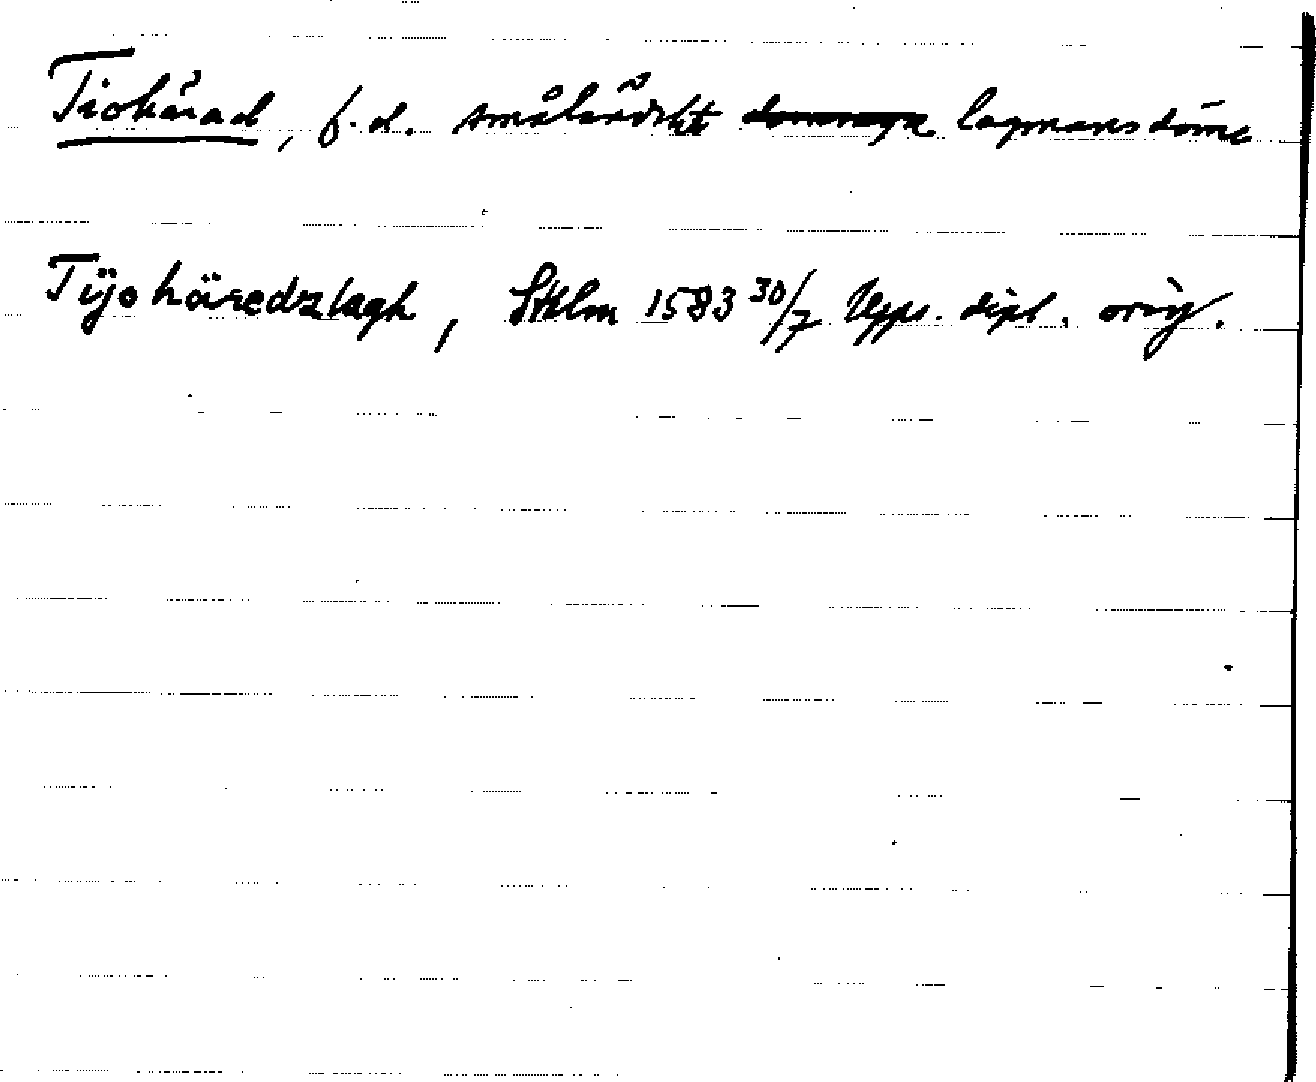 Tiohärad, f.d. småländskt lagmansdöme
Tÿohäredzlagh, Sthlm 1583 30/7 Upps. dipl. orig.